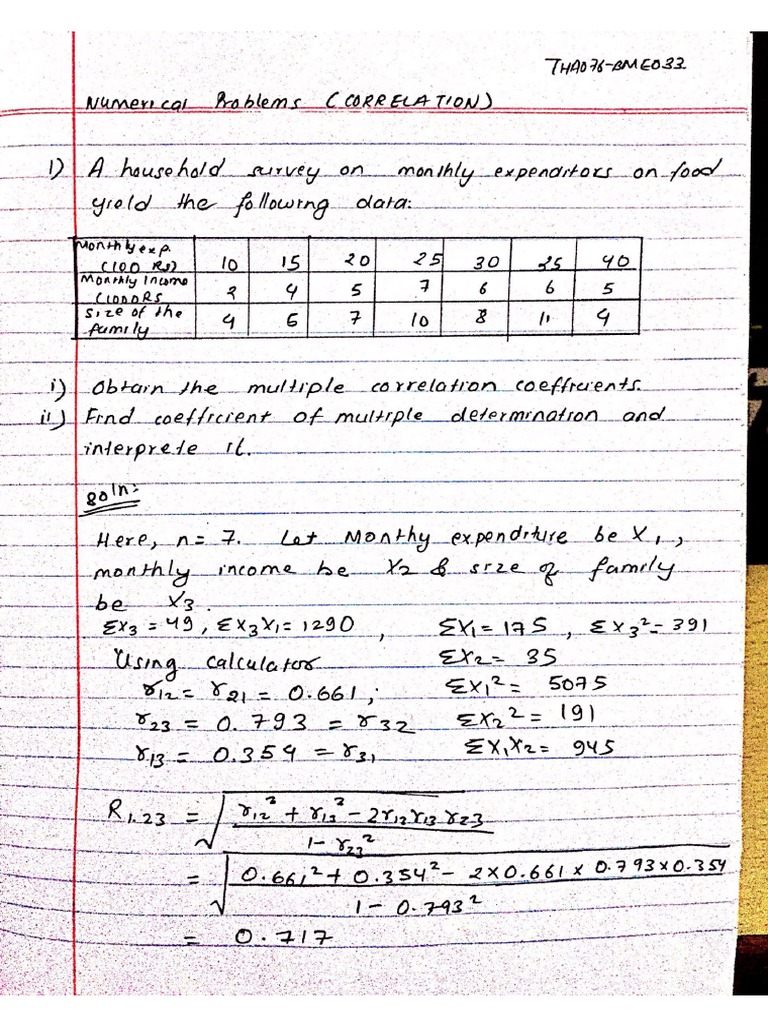 THA076-BME033
Numerical Problems (CORRELATION)
1) A household survey on monthly expenditors on food
yield the following data:
Monthly exp. (100 RS) 10 15 20 25 30 25 40
Monthly Income (1000RS 2 4 5 7 6 6 5
size of the family 4 5 7 10 8 11 4
i) Obtain the multiple correlation coefficients.
ii) Find coefficient of multiple determination and
interprete it.
soln:
Here, n= 7. Let Monthy expenditure be X1,
monthly income be X2 & size of family
be X3.
ΣX3 = 49, ΣX3X1 = 1290, ΣX1 = 175, ΣX3²= 391
Using calculator ΣX2 = 35
r12 = r21 = 0.661; ΣX1² = 5075
r23 = 0.793 = r32 ΣX2² = 191
r13 = 0.354 = r31 ΣX1X2 = 945
R1.23 = √(r12² + r13² - 2r12r13r23 / 1 - r23²)
= √(0.661² + 0.354² - 2×0.661×0.793×0.354 / 1 - 0.793²)
= 0.717